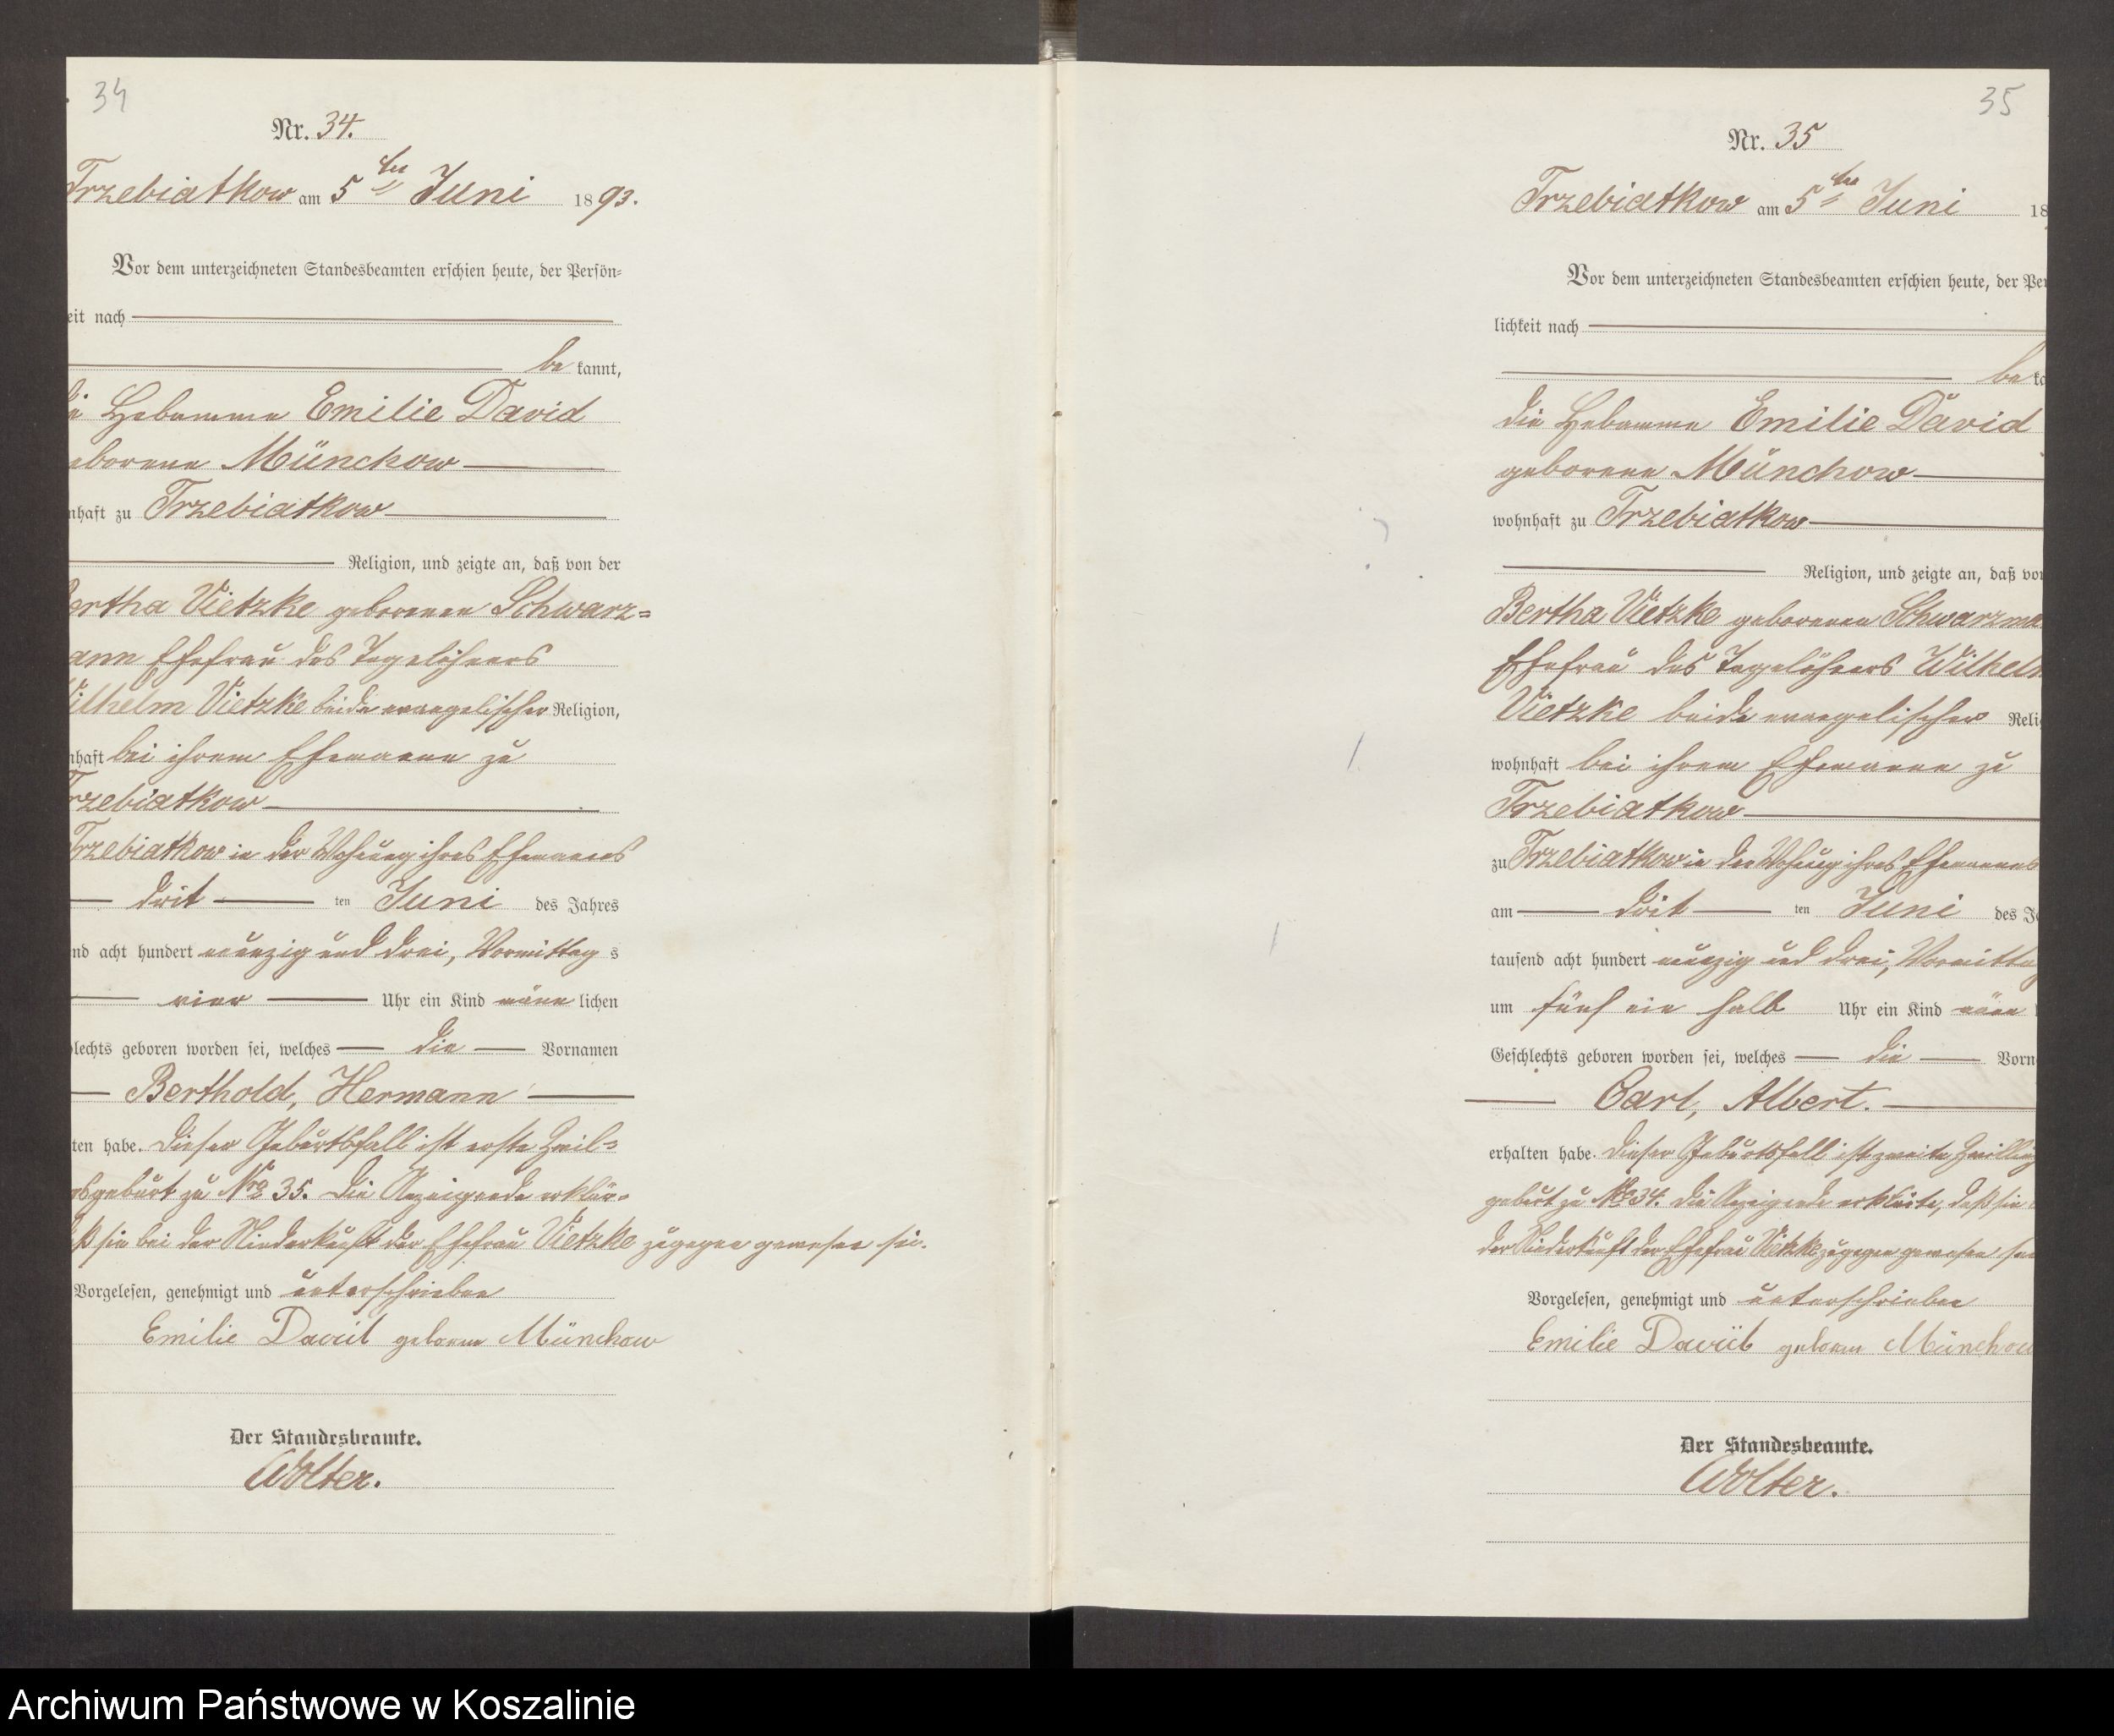 34
Nr. 34.
Trzebiatkow am 5ten Juni 1893.
Vor dem unterzeichneten Standesbeamten erschien heute, der Persön-
eit nach
be kannt,
die Hebamme Emilie David
eborene Münchow
nhaft zu Trzebiatkow
Religion, und zeigte an, daß von der
Bertha Vietzke geborenen Schwarz=
ann Ehefrau des Tagelöhners
Wilhelm Vietzke beide evangelischer Religion,
nhaft bei ihrem Ehemanne zu
Trzebiatkow
Trzebiatkow in der Wohnung ihres Ehemannes
dritten Juni des Jahres
nd acht hundert neunzig und drei, Vormittags
vier Uhr ein Kind männlichen
lechts geboren worden sei, welches die Vornamen
Berthold, Hermann
ten habe. Dieser Geburtsfall ist erste Zwil=
gsgeburt zu Nro 35. Die Anzeigende erklär=
ß sie bei der Niederkunft der Ehefrau Vietzke zugegen gewesen sei.
Vorgelesen, genehmigt und unterschrieben
Emilie David geborne Münchow
Der Standesbeamte.
Wolter.
35
Nr. 35
Trzebiatkow am 5ten Juni 18
Vor dem unterzeichneten Standesbeamten erschien heute, der Per
lichkeit nach
be ka
die Hebamme Emilie David
geborene Münchow
wohnhaft zu Trzebiatkow
Religion, und zeigte an, daß von
Bertha Vietzke geborenen Schwarzma
Ehefrau des Tagelöhners Wilhelm
Vietzke beide evangelischer Reli
wohnhaft bei ihrem Ehemanne zu
Trzebiatkow
zu Trzebiatkow in der Wohnung ihres Ehemannes
am dritten Juni des J
tausend acht hundert neunzig und drei, Vormittag
um fünf ein halb Uhr ein Kind männ
Geschlechts geboren worden sei, welches die Vorn
Carl, Albert.
erhalten habe. Dieser Geburtsfall ist zweite Zwilling
geburt zu Nro 34. Die Anzeigende erklärte, daß sie
der Niederkunft der Ehefrau Vietzke zugegen gewesen sei
Vorgelesen, genehmigt und unterschrieben
Emilie David geborne Münchow
Der Standesbeamte.
Wolter.
Archiwum Państwowe w Koszalinie